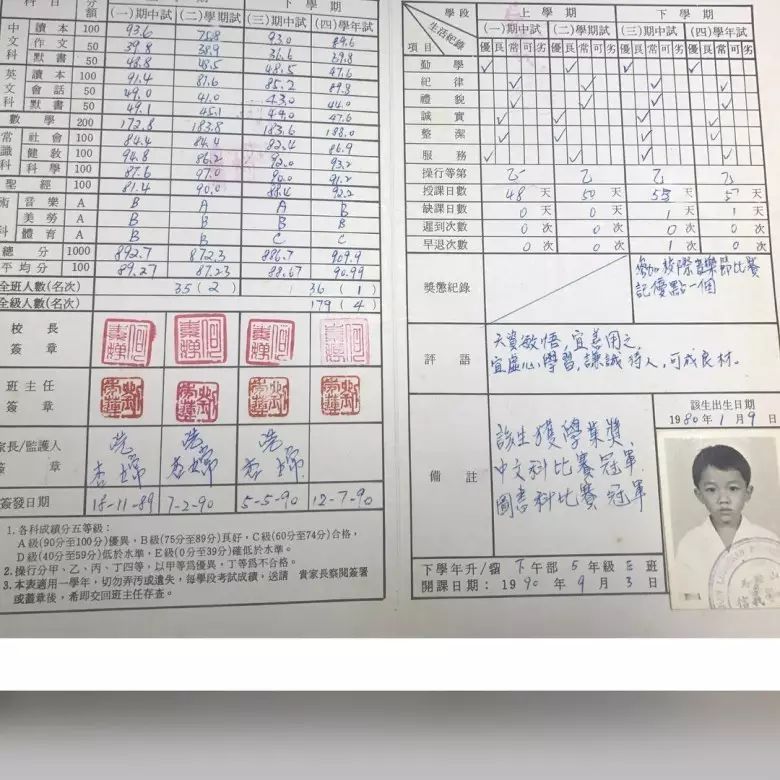 科目 分額 上學期 下學期
(一)期中試 (二)學期試 (三)期中試 (四)學年試
中文科 讀本 100 93.6 75.8 93.0 89.6
作文 50 39.8 38.9 36.6 39.8
默書 50 48.8 48.5 48.5 47.6
英文科 讀本 100 91.4 87.6 85.2 89.8
會話 50 49.0 41.0 43.0 44.0
默書 50 49.1 45.1 49.0 47.6
數學 200 172.8 183.8 183.6 188.0
常識科 社會 100 84.4 84.4 82.4 86.9
健教 100 94.8 86.2 92.0 93.2
科學 100 87.6 97.0 90.0 91.2
聖經 100 81.4 90.0 88.4 92.2
術科 音樂 A B A A B
美勞 A B B B B
體育 A B B C C
總分 1000 892.7 872.3 886.7 909.9
平均分 100 89.27 87.23 88.67 90.99
全班人數(名次) 35(2) 36(1)
全級人數(名次) 179(4)
校長簽章
班主任簽章
家長/監護人簽章
簽發日期 18-11-89 7-2-90 5-5-90 12-7-90
1.各科成績分五等級:
A級(90分至100分)優異,B級(75分至89分)良好,C級(60分至74分)合格,
D級(40分至59分)低於水準,E級(0分至39分)確低於水準。
2.操行分甲、乙、丙、丁四等,以甲等為優異,丁等為不合格。
3.本表適用一學年,切勿弄污或遺失,每學段考試成績,送請 貴家長察閱簽署
或蓋章後,希即交回班主任存查。
學段 上學期 下學期
生活紀錄 (一)期中試 (二)學期試 (三)期中試 (四)學年試
項目 優良常可劣 優良常可劣 優良常可劣 優良常可劣
勤學 ✓ ✓ ✓ ✓
紀律 ✓ ✓ ✓ ✓
禮貌 ✓ ✓ ✓ ✓
誠實 ✓ ✓ ✓ ✓
整潔 ✓ ✓ ✓ ✓
服務 ✓ ✓ ✓ ✓
操行等第 乙 乙 乙 乙
授課日數 48天 50天 55天 57天
缺課日數 0天 0天 1天 1天
遲到次數 0次 0次 0次 0次
早退次數 0次 0次 1次 0次
獎懲紀錄 參加校際音樂節比賽
記優點一個
評語 天資敏悟,宜善用之,
宜虛心學習,謙誠待人,可成良材。
備註 該生獲學業獎,
中文科比賽冠軍,
圖書科比賽冠軍
該生出生日期
1980年1月9日
下學年升/留 下午部 5年級 E班
開課日期:1990年9月3日